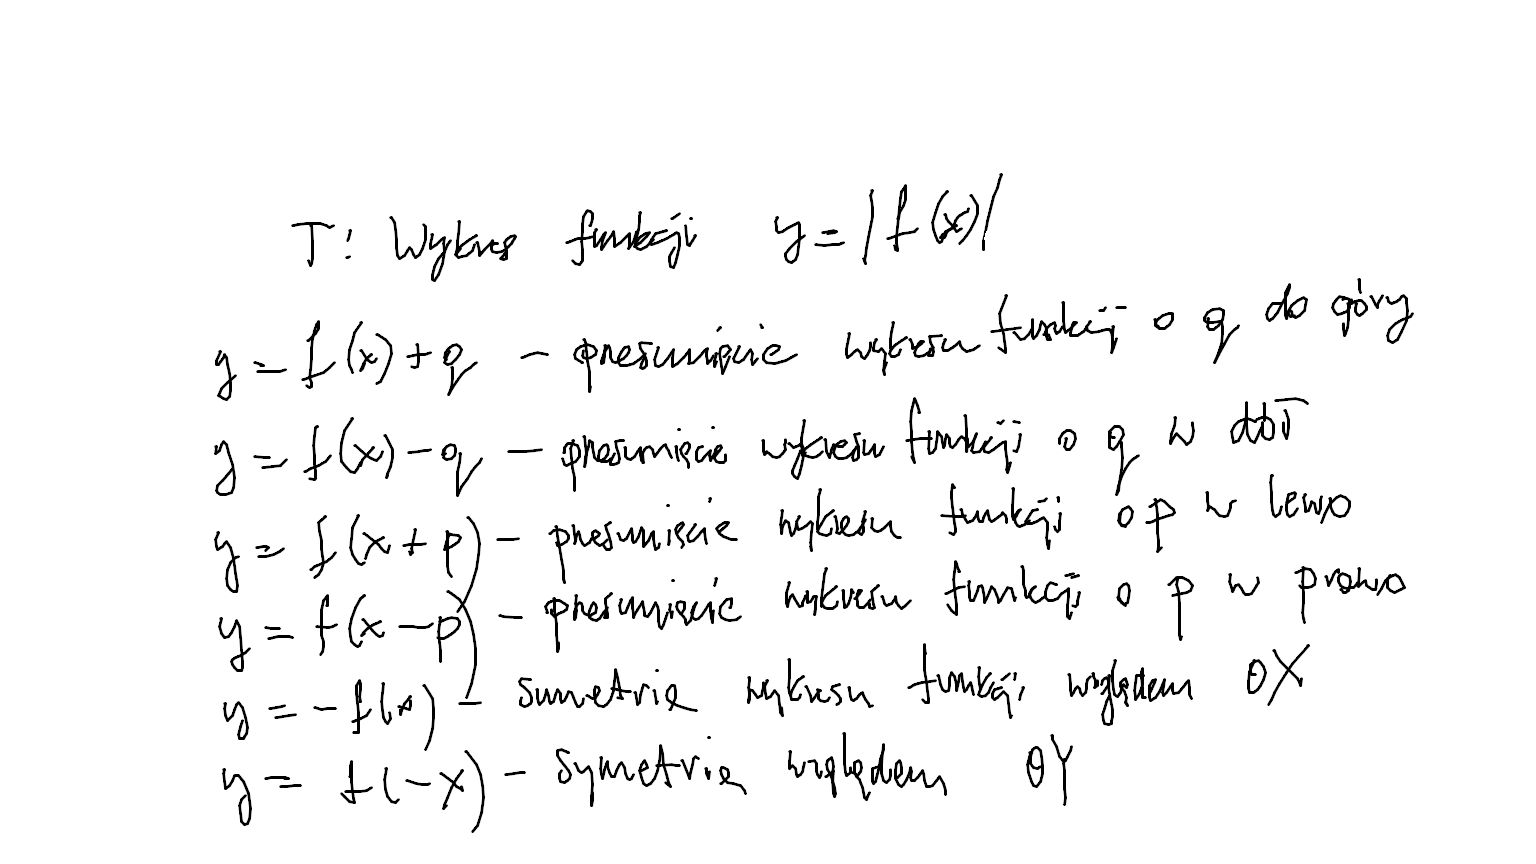 T: Wykres funkcji y = |f(x)|
y = f(x) + q – przesunięcie wykresu funkcji o q do góry
y = f(x) – q – przesunięcie wykresu funkcji o q w dół
y = f(x + p) – przesunięcie wykresu funkcji o p w lewo
y = f(x – p) – przesunięcie wykresu funkcji o p w prawo
y = – f(x) – symetria wykresu funkcji względem OX
y = f(–x) – symetria względem OY